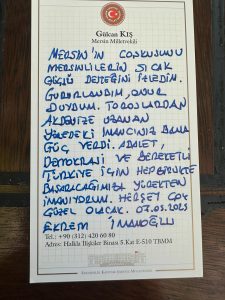 Gülcan KIŞ
Mersin Milletvekili
MERSİN'İN COŞKUSUNU
MERSİNLİLERİN SICAK
GÜÇLÜ DESTEĞİNİ İZLEDİM.
GURURLANDIM, ONUR
DUYDUM. TOROSLARDAN
AKDENİZE UZANAN
YÜREĞİNİZDEKİ
GÜÇ VERDİ. ADALET,
DEMOKRASİ VE BEREKETLİ
TÜRKİYE İÇİN HEP BİRLİKTE
BAŞARACAĞIMIZA YÜREKTEN
İNANIYORUM. HERŞEY ÇOK
GÜZEL OLACAK. 07.05.2025
EKREM İMAMOĞLU
Tel.: +90 (312) 420 60 80
Adres: Halkla İlişkiler Binası 5.Kat E-510 TBMM